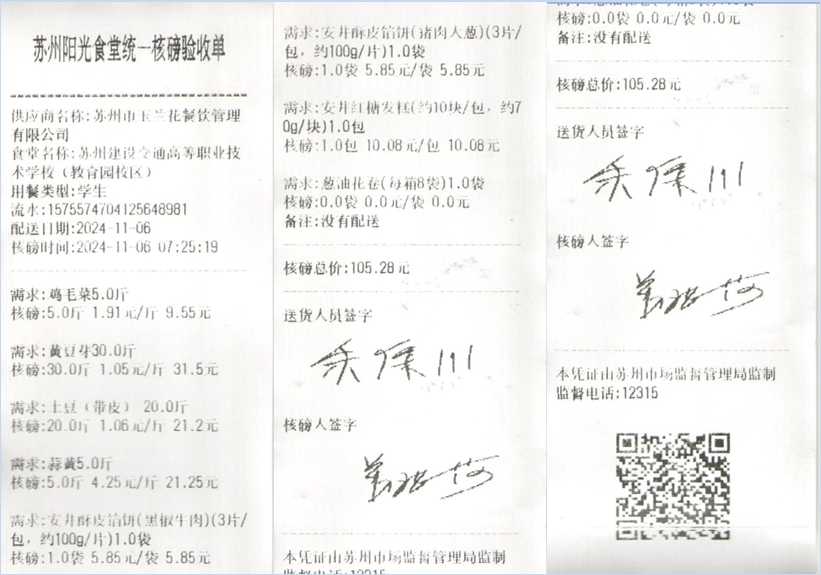 苏州阳光食堂统一核磅验收单
供应商名称:苏州市玉兰花餐饮管理
有限公司
食堂名称:苏州建设交通高等职业技
术学校（教育园校区）
用餐类型:学生
流水:1575574704125648981
配送日期:2024-11-06
核磅时间:2024-11-06 07:25:19
需求:鸡毛菜5.0斤
核磅:5.0斤 1.91元/斤 9.55元
需求:黄豆芽30.0斤
核磅:30.0斤 1.05元/斤 31.5元
需求:土豆（带皮） 20.0斤
核磅:20.0斤 1.06元/斤 21.2元
需求:蒜黄5.0斤
核磅:5.0斤 4.25元/斤 21.25元
需求:安井酥皮馅饼(黑椒牛肉)(3片/
包，约100g/片)1.0袋
核磅:1.0袋 5.85元/袋 5.85元
需求:安井酥皮馅饼(猪肉大葱)(3片/
包，约100g/片)1.0袋
核磅:1.0袋 5.85元/袋 5.85元
需求:安井红糖发糕(约10块/包，约7
0g/块)1.0包
核磅:1.0包 10.08元/包 10.08元
需求:葱油花卷(每箱8袋)1.0袋
核磅:0.0袋 0.0元/袋 0.0元
备注:没有配送
核磅总价:105.28元
送货人员签字
核磅人签字
本凭证由苏州市场监督管理局监制
监督电话:12315
核磅:0.0袋 0.0元/袋 0.0元
备注:没有配送
核磅总价:105.28元
送货人员签字
核磅人签字
本凭证由苏州市场监督管理局监制
监督电话:12315